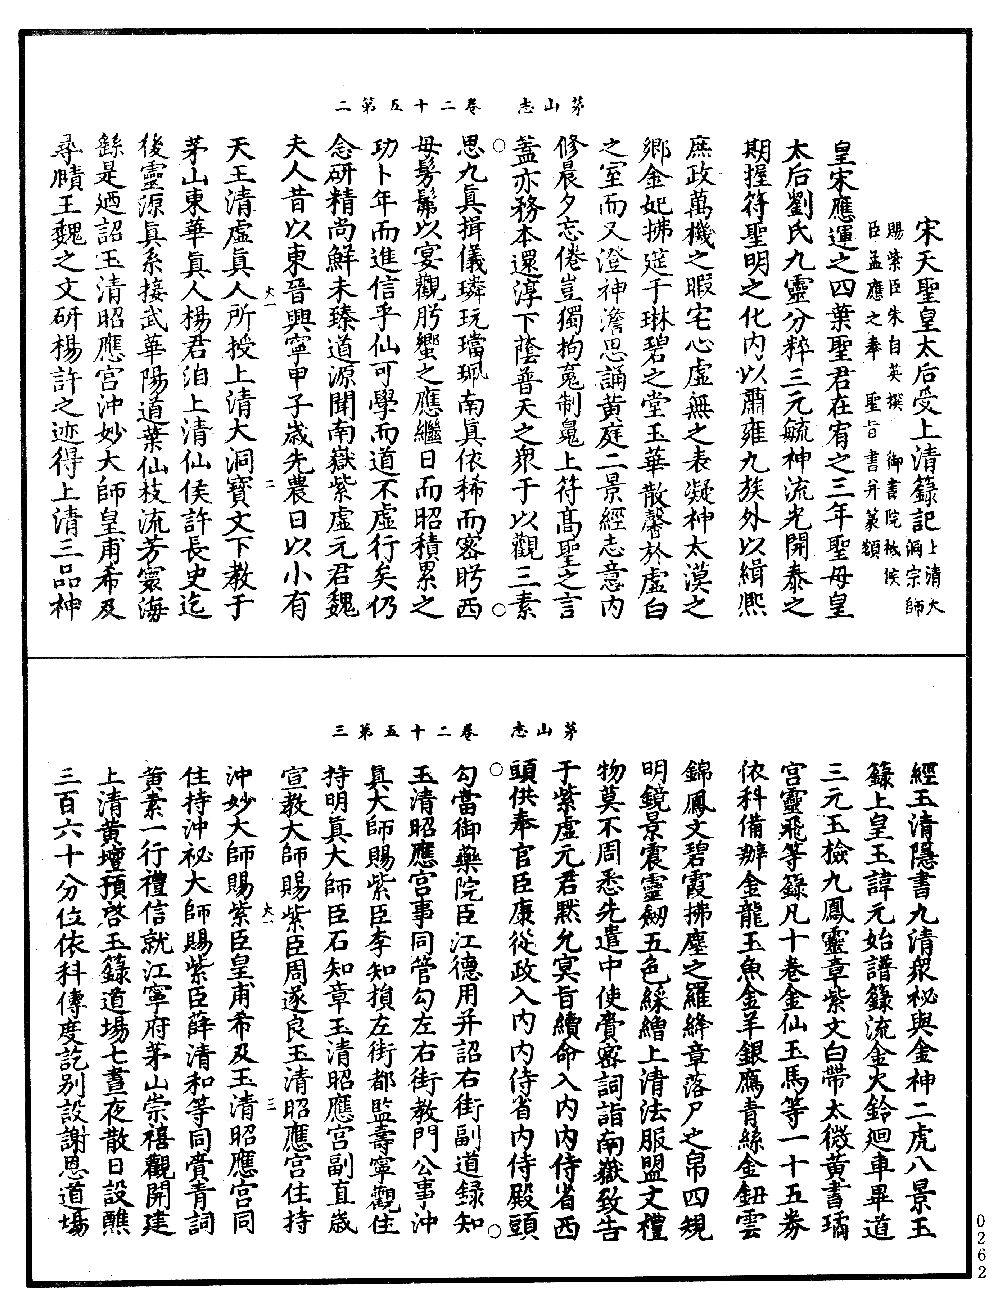 茅山志　卷二十五第二
宋天聖皇太后受上清籙記上清大洞宗師
賜紫臣朱自英撰　御書院祗候
臣孟應之奉　聖旨書并篆額
皇宋應運之四葉聖君在宥之三年聖母皇
太后劉氏九靈分粹三元毓神流光開泰之
期握符聖明之化內以肅雍九族外以緝熙
庶政萬機之暇宅心虛無之表凝神太漠之
鄉金妃拂筵于琳碧之堂玉華散馨於虛白
之室而又澄神澹思誦黃庭二景經志意內
修晨夕忘倦豈獨拘蒐制毚上符高聖之言
蓋亦務本還淳下蔭普天之衆于以觀三素
思九真揖儀璘玩璫珮南真依稀而密眄西
母髣髴以宴觀肸蠁之應繼日而昭積累之
功卜年而進信乎仙可學而道不虛行矣仍
念研精尚鮮未臻道源聞南嶽紫虛元君魏
夫人昔以東晉興寧甲子歲先農日以小有
天王清虛真人所授上清大洞寶文下教于
茅山東華真人楊君洎上清仙侯許長史迄
後靈源真系接武華陽道葉仙枝流芳寰海
繇是迺詔玉清昭應宮沖妙大師皇甫希及
尋賾王魏之文研楊許之迹得上清三品神
大一　二
茅山志　卷二十五第三
經玉清隱書九清衆祕與金神二虎八景玉
籙上皇玉諱元始譜籙流金火鈴廻車畢道
三元玉檢九鳳靈章紫文白帶太微黃書璚
宮靈飛等籙凡十卷金仙玉馬等一十五券
依科備辦金龍玉魚金羊銀鴈青絲金鈕雲
錦鳳文碧霞拂塵之羅絳章落尸之帛四規
明鏡景震靈劒五色綵繒上清法服盟文禮
物莫不周悉先遣中使賫密詞詣南嶽致告
于紫虛元君默允冥旨續命入內內侍省西
頭供奉官臣康從政入內內侍省內侍殿頭
勾當御藥院臣江德用并詔右街副道録知
玉清昭應宮事同管勾左右街教門公事沖
真大師賜紫臣李知損左街都監壽寧觀住
持明真大師臣石知章玉清昭應宮副直歲
宣教大師賜紫臣周遂良玉清昭應宮住持
沖妙大師賜紫臣皇甫希及玉清昭應宮同
住持沖祕大師賜紫臣薛清和等同賫青詞
黃素一行禮信就江寧府茅山崇禧觀開建
上清黃壇預啓玉籙道場七晝夜散日設醮
三百六十分位依科傳度訖別設謝恩道場
大一　三
0262